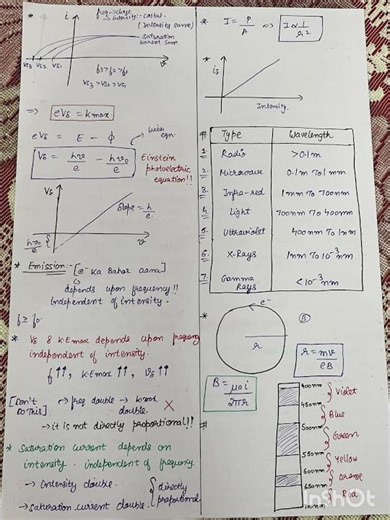 i
freq → change
→ intensity → const.
(Intensity same)
saturation
current same
VS3 VS2 VS1
V
f3 > f2 > f1
VS3 > VS2 > VS1
⇒ eVs = Kmax
eVs = E - ϕ
Vs = hν/e - hν0/e
Einstein
photoelectric
equation !!
Vs
slope = h/e
hν0/e
ν
* Emission :- [e⁻ ka bahar aana]
↳ depends upon frequency !!
independent of intensity.
f ≥ f0.
* Vs & K.Emax depends upon frequency
independent of intensity.
f ↑↑, K.Emax ↑↑, Vs ↑↑
[Don't
Do This] ↪ freq double → Kmax
double. ✗
→ it is not directly proportional !!
* Saturation current depends on
intensity. independent of frequency.
→ Intensity double.
→ saturation current double.
directly
proportional
* I = P/A ⇔ I ∝ 1/r²
*
is
Intensity.
# Type Wavelength
1. Radio >0.1m
2. Microwave 0.1m to 1mm
3. Infra-red 1mm to 700nm
4. Light 700nm to 400nm
5. Ultraviolet 400nm to 1nm
6. X-Rays 1nm to 10⁻³nm
7. Gamma
Rays <10⁻³nm
* e⁻
r
B
r = mv/eB
B = μ0 i/2πr
#
400nm
Violet
450nm
Blue
500nm
Green
550nm
Yellow
600nm
Orange
650nm
Red
InShOt